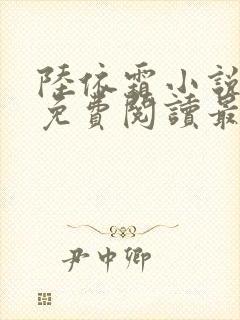 陸依霜小說
免費閱讀最
尹中卿